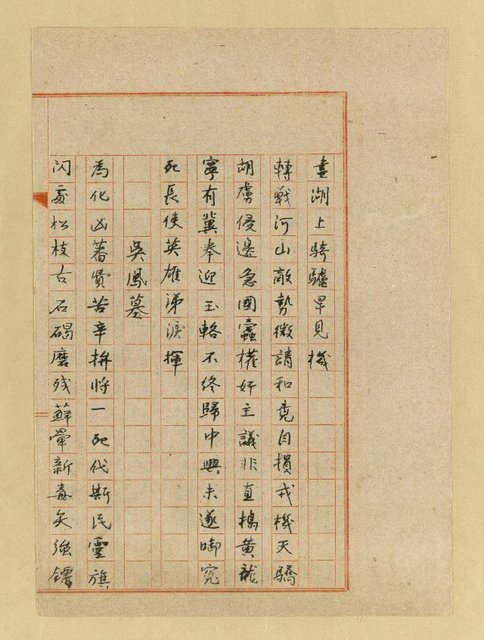 畫湖上騎驢早見機
轉戰河山敵勢微請和竟自損戎機天驕
胡虜侵邊急國蠹權奸主議非直搗黃龍
寧有冀奉迎玉輅不終歸中興未遂啣冤
死長使英雄涕淚揮
吳鳳墓
為化凶蕃費苦辛拚將一死代斯民靈旗
閃處松枝古石碣磨殘蘚暈新毒矢強鏢